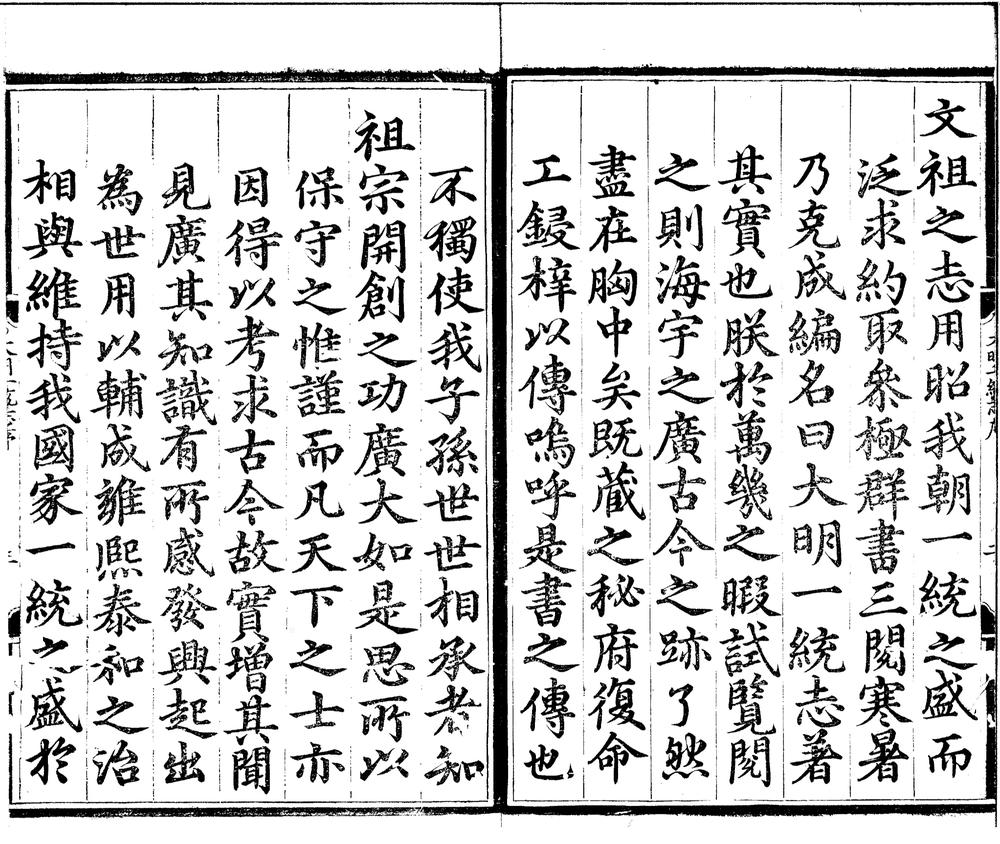 文祖之志用昭我朝一統之盛而
泛求約取參極群書三閱寒暑
乃克成編名曰大明一統志著
其實也朕於萬幾之暇試覽閱
之則海宇之廣古今之跡了然
盡在胸中矣既藏之秘府復命
工鋟梓以傳嗚呼是書之傳也
不獨使我子孫世世相承者知
祖宗開創之功廣大如是思所以
保守之惟謹而凡天下之士亦
因得以考求古今故實增其聞
見廣其知識有所感發興起出
為世用以輔成雍熙泰和之治
相與維持我國家一統之盛於